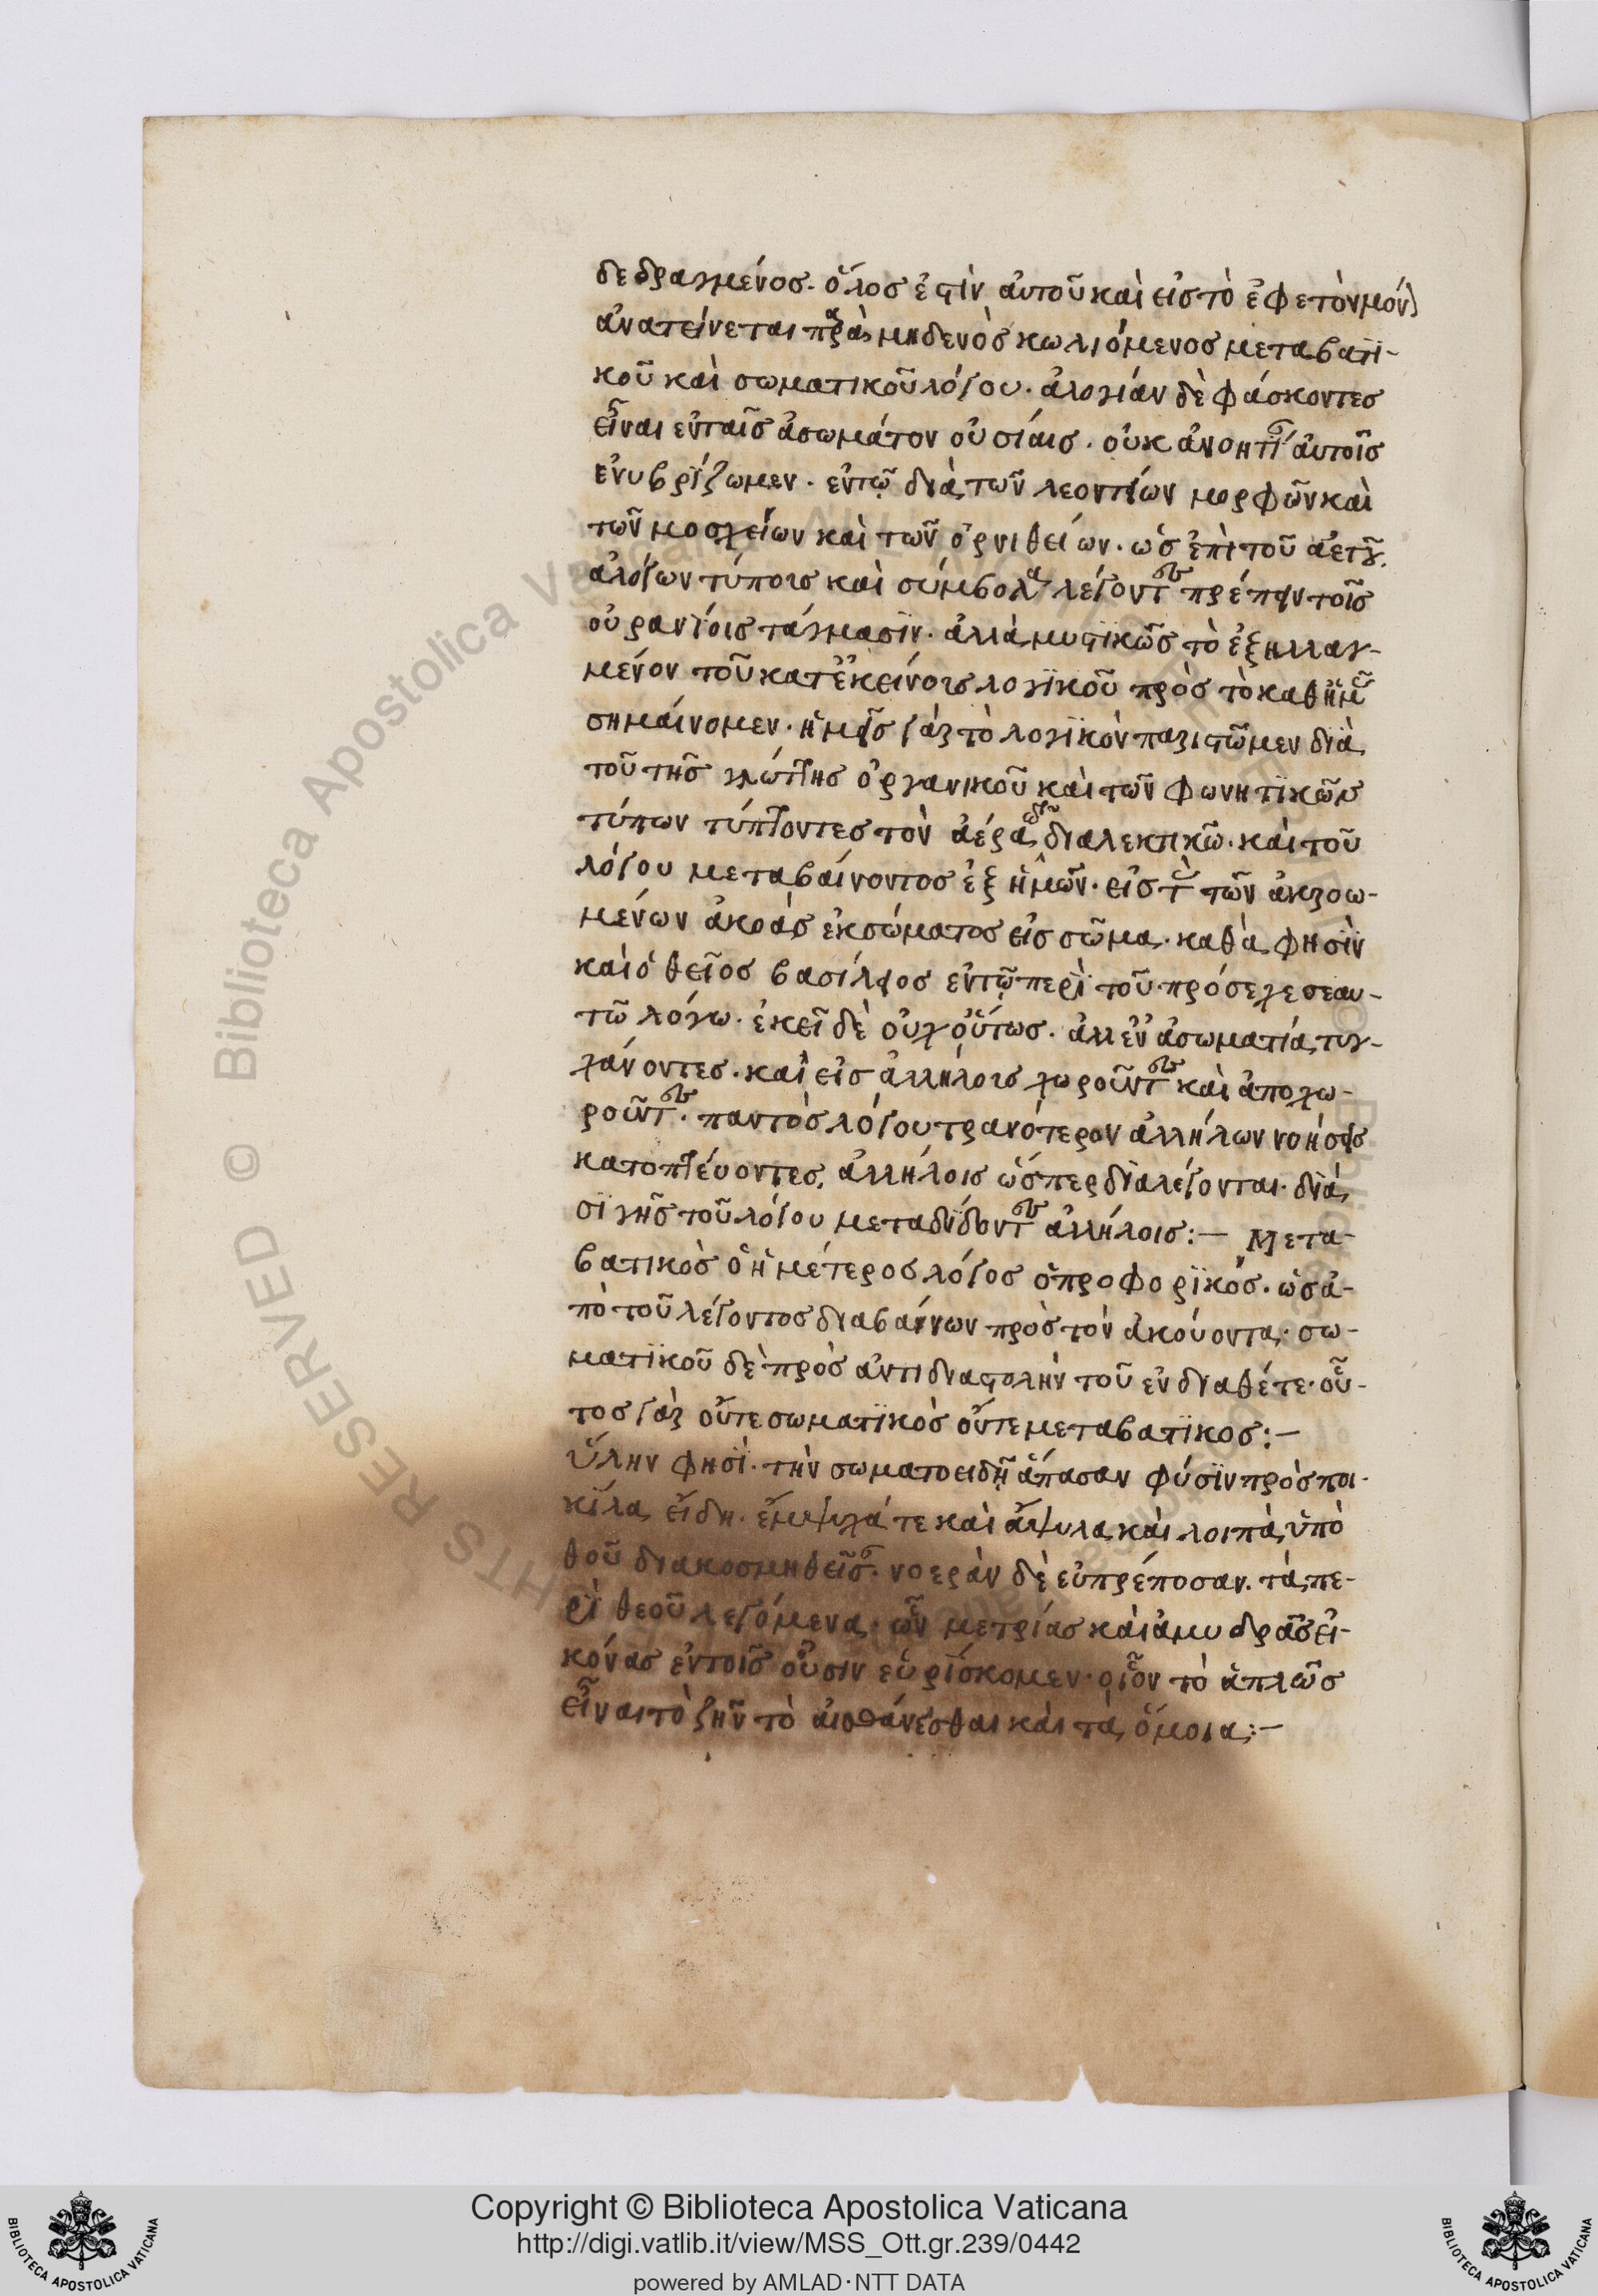 δεδραγμένοσ. ὅλοσ ἐστὶν ἀυτοῦ καὶ εἰσ τὸ ἐφετὸν μόν
ἀνατείνεται πρα μηδενὸσ κωλιόμενοσ μεταβατϊ-
κοῦ καὶ σωματικοῦ λόγου. ἀλογίαν δὲ φάσκοντεσ
εἶναι ἐν ταῖσ ἀσωμάτον οὐσίαισ. οὐκ ἀνοητ ἀυτοῖσ
ἐνυβρίζωμεν. ἐν τῶ διὰ τῶν λεοντίων μορφῶν καὶ
τῶν μοσχείων καὶ τῶν ὀρνιθείων. ὡσ ἐπὶ τοῦ ἀετοῦ.
ἀλόγων τύποισ καὶ σύμβολα λέγοντ πρέπειν τοῖσ
οὐρανίοισ τάγμασϊν. ἀλλὰ μυστϊκῶσ τὸ ἐξηλλαγ-
μένον τοῦ κατ ἐκείνοισ λογϊκοῦ πρὸσ τὸ καθ ἡμ
σημαίνομεν. ἡμεῖσ γὰρ τὸ λογϊκὸν παριστῶμεν διὰ
τοῦ τῆσ γλώττησ ὀργανικοῦ καὶ τῶν φωνητϊκῶν
τύπων τύπτοντεσ τὸν ἀέρα διαλεκτικῶ. καὶ τοῦ
λόγου μεταβαίνοντοσ ἐξ ἡμῶν. εἰσ τ τῶν ἀκρ οω-
μένων ἀκοὰσ ἐκ σώματοσ εἰσ σῶμα. καθὰ φησϊν
καὶ ὁ θεῖοσ βασίλειοσ ἐν τῶ περὶ τοῦ πρόσεχε σεαυ-
τῶ λόγω. ἐκεῖ δὲ οὐχ οὕτωσ. ἀλλ ἐν ἀσωματία τυγ-
χάνοντεσ. καὶ εἰσ ἀλλήλοισ χωροῦντ καὶ ἀποχω-
ροῦντ. παντὸσ λόγου τρανότερον ἀλλήλων νοήσεισ
κατοπτέυοντεσ, ἀλλήλοισ ὥσπερ διαλέγονται. διὰ
σϊγῆσ τοῦ λόγου μεταδϊδοντ ἀλλήλοισ:— Μετα-
βατικὸσ ὁ ἡμέτεροσ λόγοσ ὁ προφορϊκόσ. ὡσ ἀ-
πὸ τοῦ λέγοντοσ διαβαίνων πρὸσ τὸν ἀκούοντα. σω-
ματϊκοῦ δὲ πρὸσ ἀντιδιαστολὴν τοῦ ἐνδιαθέτε. οὗ-
τοσ γὰρ οὔτε σωματϊκὸσ οὔτε μεταβατϊκοσ:—
ὕλην φησὶ. τὴν σωματοειδῆ ἅπασαν φύσϊν πρὸσ ποι-
κίλα εἴδη. ἔμψυχά τε καὶ ἄψυχα, καὶ λοιπὰ, ὑπὸ
θοῦ διακοσμηθεῖσ. νοερὰν δὲ εὐπρέποσαν. τὰ πε-
ρὶ θεοῦ λεγόμενα. ὧν μετρίασ καὶ ἀμυδρᾶσ εἰ-
κόνασ ἐν τοῖσ οὖσιν εὑρϊσκομεν. οἷον τὸ ἁπλῶσ
εἶναι τὸ ζῆν τὸ ἀισθάνεσθαι καὶ τὰ ὅμοια:—
Copyright © Biblioteca Apostolica Vaticana
http://digi.vatlib.it/view/MSS_Ott.gr.239/0442
powered by AMLAD·NTT DATA